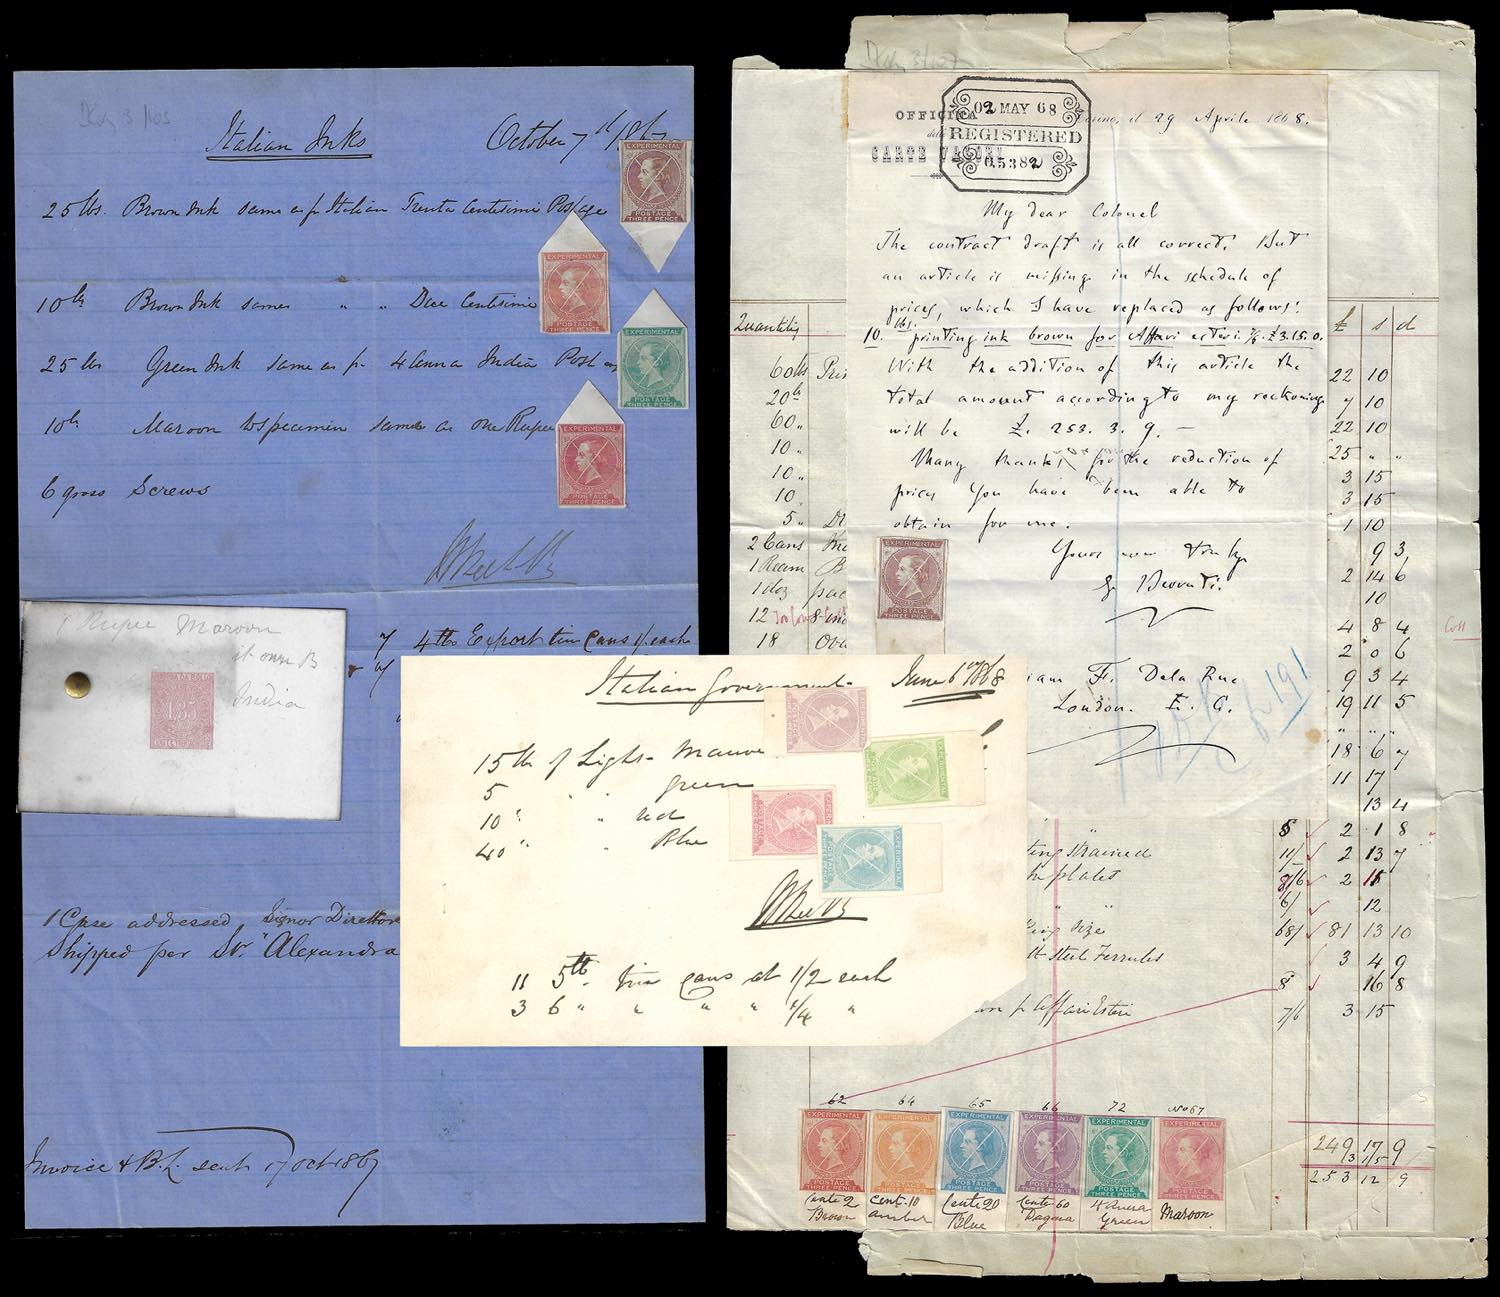 Italian Inks October 7th 1867
25 lbs. Brown Ink same as pr Italian Trenta Centesimi Postage
10 lb Brown Ink same " " Due Centesimi
25 lbs Green Ink same as pr 4 Anna India Postage
10 lb Maroon to specimen same as one Rupee
6 gross Screws
4 lb Export tin cans 1/ each
1 Case addressed, Signor Direttor
Shipped per Sr. "Alexandra
Invoice & B.L. sent 17 Oct 1867
EXPERIMENTAL
POSTAGE
THREE PENCE
EXPERIMENTAL
POSTAGE
THREE PENCE
EXPERIMENTAL
POSTAGE
THREE PENCE
EXPERIMENTAL
POSTAGE
THREE PENCE
1 Rupee Maroon
India
Italian Government June 6th 1868
15 lb of Light Mauve
5 " " green
10 " " red
40 " " Blue
11 5 lb. tin cans at 1/2 each
3 6 " " " " 1/4 "
OFFICINA
delle
CARTE VALORI
02 MAY 68
REGISTERED
05382
Torino, il 29 Aprile 1868.
My dear Colonel
The contract draft is all correct. But
an article is missing in the schedule of
prices, which I have replaced as follows:
10. lbs. printing ink brown for Affari esteri 7/6. £3.15.0.
With the addition of this article the
total amount according to my reckoning
will be £. 253. 3. 9. —
Many thanks for the reduction of
prices you have been able to
obtain for me.
Yours very truly
EXPERIMENTAL
POSTAGE
THREE PENCE
William F. De la Rue
London. E. C.
Quantities £ s d
60 lbs 22 10
20 lb 7 10
60 " 22 10
10 " 25 " "
10 " 3 15
10 " 3 15
5 " 1 10
2 Cans 9 3
1 Ream 2 14 6
1 doz 10
12 4 8 4
18 2 0 6
9 3 4
19 11 5
18 6 7
11 17
13 4
2 1 8
strained 11/- 2 13 7
plates 8/6 2 11
6/ 12
Size 68/ 81 13 10
steel Ferrules 3 4 9
8 16 8
pr Affari Esteri 7/6 3 15
62 64 65 66 72 No 67
EXPERIMENTAL EXPERIMENTAL EXPERIMENTAL EXPERIMENTAL EXPERIMENTAL EXPERIMENTAL
POSTAGE POSTAGE POSTAGE POSTAGE POSTAGE POSTAGE
THREE PENCE THREE PENCE THREE PENCE THREE PENCE THREE PENCE THREE PENCE
Cente 2 Cent. 10 Cente 20 Cente 60 4 Anna Maroon
Brown Amber Blue Green
249 17 9
253 12 9